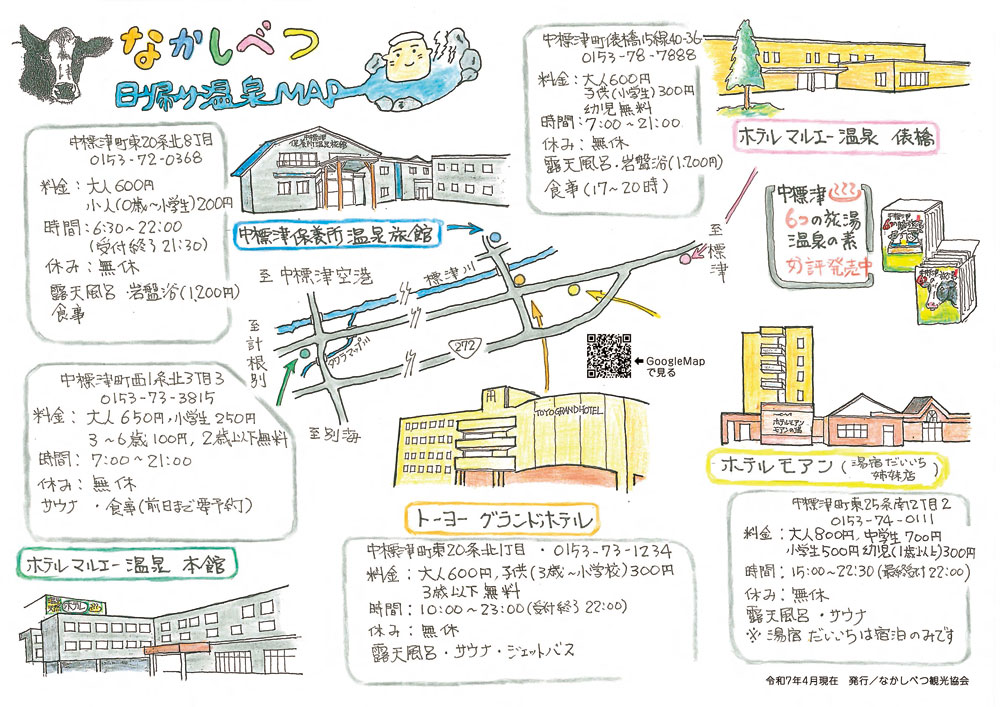 なかしべつ
日帰り温泉MAP
中標津町東20条北8丁目
0153-72-0368
料金：大人600円
小人(0歳～小学生)200円
時間：6:30～22:00
(受付終了21:30)
休み：無休
露天風呂・岩盤浴(1,200円)
食事
中標津保養所温泉旅館
中標津保養所温泉旅館
中標津町俵橋15線40-36
0153-78-7888
料金：大人600円
子供(小学生)300円
幼児無料
時間：7:00～21:00
休み：無休
露天風呂・岩盤浴(1,200円)
食事(17～20時)
ホテルマルエー温泉 俵橋
中標津
6つの旅湯
温泉の素
好評発売中
至中標津空港
標津川
至標津
至計根別
タワラマップ川
272
至別海
GoogleMap
で見る
中標津町西1条北3丁目3
0153-73-3815
料金：大人650円,小学生250円
3～6歳100円,2歳以下無料
時間：7:00～21:00
休み：無休
サウナ・食事(前日まで要予約)
ホテルマルエー温泉 本館
ホテル
TOYO GRAND HOTEL
トーヨー グランドホテル
中標津町東20条北1丁目・0153-73-1234
料金：大人600円,子供(3歳～小学校)300円
3歳以下無料
時間：10:00～23:00(受付終了22:00)
休み：無休
露天風呂・サウナ・ジェットバス
ホテルモアン
モアンの湯
ホテルモアン(湯宿だいいち姉妹店)
中標津町東25条南12丁目2
0153-74-0111
料金：大人800円,中学生700円
小学生500円幼児(1歳以上)300円
時間：15:00～22:30(最終受付22:00)
休み：無休
露天風呂・サウナ
※湯宿だいいちは宿泊のみです
令和7年4月現在 発行／なかしべつ観光協会